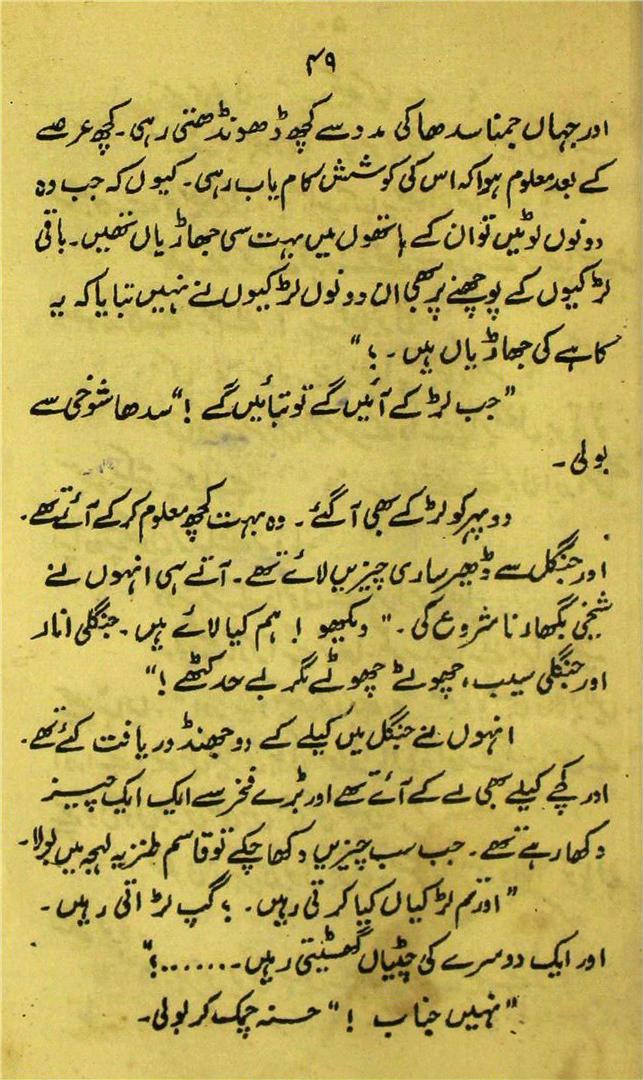 ۴۹
اور جہاں جمنا سدھا کی مدد سے کچھ ڈھونڈھتی رہی۔ کچھ عرصے
کے بعد معلوم ہوا کہ اس کی کوشش کام یاب رہی۔ کیوں کہ جب وہ
دونوں لوٹیں تو ان کے ہاتھوں میں بہت سی جھاڑیاں تھیں۔ باقی
لڑکیوں کے پوچھنے پر بھی ان دونوں لڑکیوں نے نہیں بتایا کہ یہ
کاہے کی جھاڑیاں ہیں۔ ؟"
"جب لڑکے آئیں گے تو بتائیں گے !" سدھا شوخی سے
بولی۔
دوپہر کو لڑکے بھی آ گئے۔ وہ بہت کچھ معلوم کر کے آئے تھے۔
اور جنگل سے ڈھیر ساری چیزیں لائے تھے۔ آتے ہی انہوں نے
شیخی بگھارنا شروع کی۔ " دیکھو ! ہم کیا لائے ہیں۔ جنگلی انار
اور جنگلی سیب، چھوٹے چھوٹے مگر بے حد کٹھے !"
انہوں نے جنگل میں کیلے کے دو جھنڈ دریافت کئے تھے۔
اور کچے کیلے بھی لے کے آئے تھے اور بڑے فخر سے ایک ایک چیز
دکھا رہے تھے۔ جب سب چیزیں دکھا چکے تو قاسم طنزیہ لہجہ میں بولا۔
"اور تم لڑکیاں کیا کرتی رہیں۔ ؟ گپ لڑاتی رہیں۔
اور ایک دوسرے کی چٹیاں گھسیٹتی رہیں۔.......؟"
"نہیں جناب !" حسنہ چمک کر بولی۔